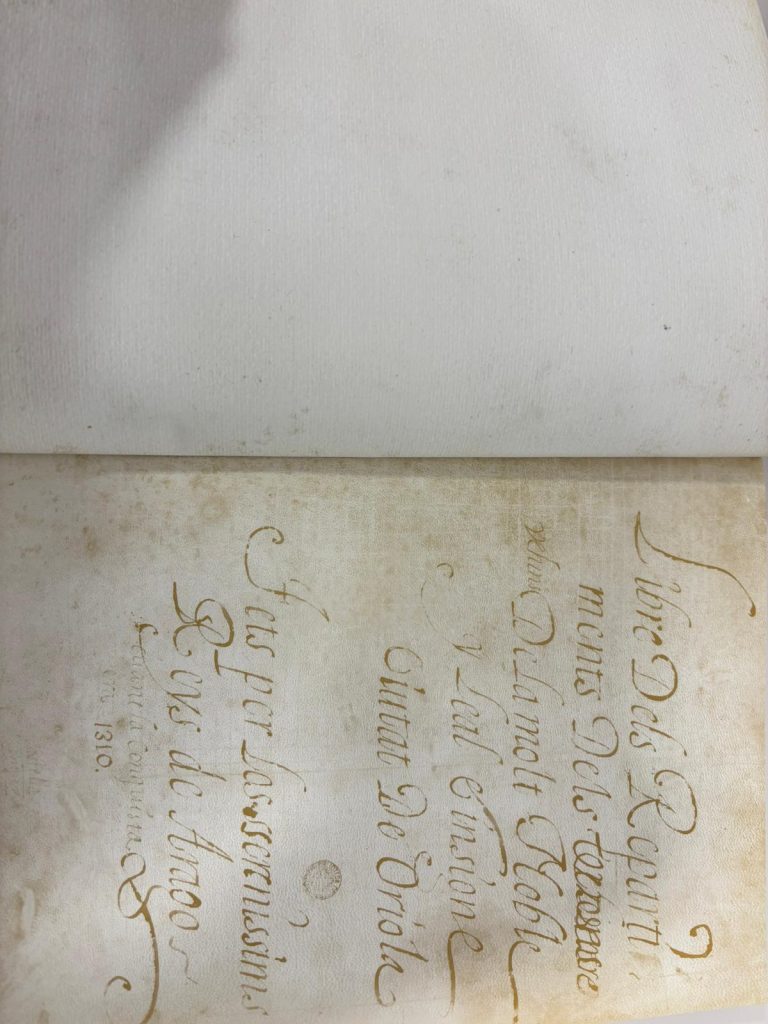 Libre Dels Reparti
ments Dels
De la molt Noble
y Leal e insione
Ciutat De Oriola
Fets per los serenissims
Reys de Arago
1310.